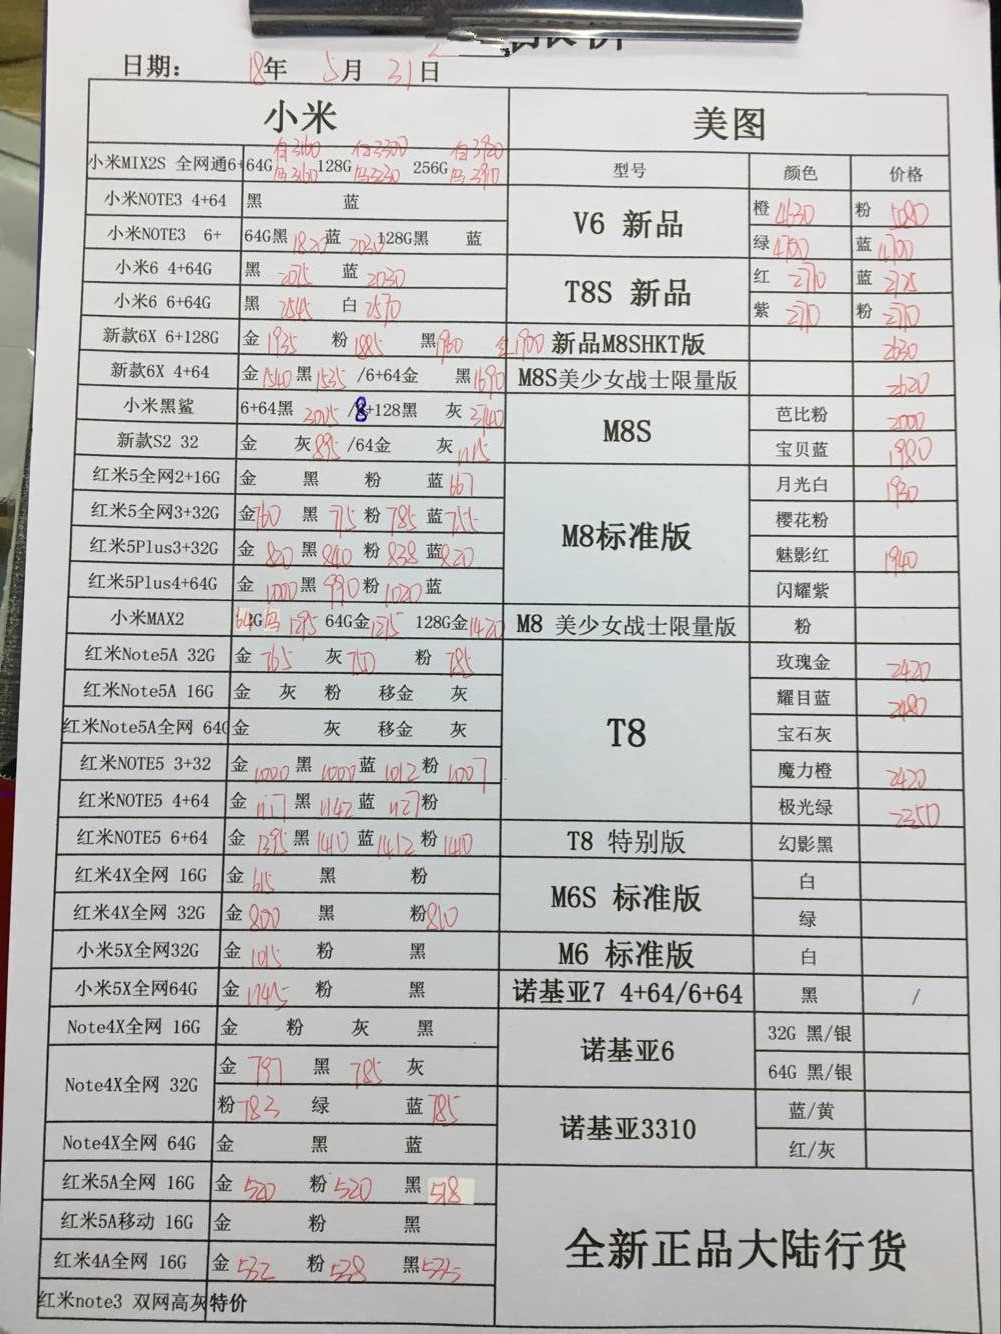 日期: 18年 5月 31日
小米 美图
小米MIX2S 全网通6+ 64G 白3160 128G 白3300 256G 型号 颜色 价格
小米NOTE3 4+64 黑 蓝
V6 新品 橙 4630 粉 5080
小米NOTE3 6+ 64G黑 1820 蓝 2030 128G黑 蓝
绿 4700 蓝 4700
小米6 4+64G 黑 2075 蓝 2030
T8S 新品 红 2710 蓝 2725
小米6 6+64G 黑 2545 白 2570
紫 2710 粉 2710
新款6X 6+128G 金 1935 粉 1885 黑 1960 红1900 新品M8SHKT版 2630
新款6X 4+64 金 1540 黑 1535 /6+64金 黑 1690 M8S美少女战士限量版 2620
小米黑鲨 6+64黑 2005 /8+128黑 灰
M8S 芭比粉 2000
新款S2 32 金 灰 895 /64金 灰 1115
宝贝蓝 1980
红米5全网2+16G 金 黑 粉 蓝 667
M8标准版 月光白 1930
红米5全网3+32G 金 760 黑 715 粉 785 蓝 755
樱花粉
红米5Plus3+32G 金 820 黑 840 粉 838 蓝 820
魅影红 1940
红米5Plus4+64G 金 1000 黑 990 粉 1020 蓝
闪耀紫
小米MAX2 64G 1295 64G金 1275 128G金 1420 M8 美少女战士限量版 粉
红米Note5A 32G 金 765 灰 750 粉 785
T8 玫瑰金 2420
红米Note5A 16G 金 灰 粉 移金 灰
耀目蓝 2480
红米Note5A全网 64G 金 灰 移金 灰
宝石灰
红米NOTE5 3+32 金 1000 黑 1000 蓝 1012 粉 1007
魔力橙 2420
红米NOTE5 4+64 金 1127 黑 1142 蓝 1127 粉
极光绿 2350
红米NOTE5 6+64 金 1395 黑 1410 蓝 1412 粉 1410 T8 特别版 幻影黑
红米4X全网 16G 金 615 黑 粉
M6S 标准版 白
红米4X全网 32G 金 800 黑 粉 810
绿
小米5X全网32G 金 1015 黑 粉 M6 标准版 白
小米5X全网64G 金 1145 粉 黑 诺基亚7 4+64/6+64 黑 /
Note4X全网 16G 金 粉 灰 黑
诺基亚6 32G 黑/银
Note4X全网 32G 金 797 黑 785 灰
64G 黑/银
粉 783 绿 蓝 785
诺基亚3310 蓝/黄
Note4X全网 64G 金 黑 蓝
红/灰
红米5A全网 16G 金 520 粉 520 黑 518
红米5A移动 16G 金 粉 黑
全新正品大陆行货
红米4A全网 16G 金 532 粉 538 黑 535
红米note3 双网高灰 特价